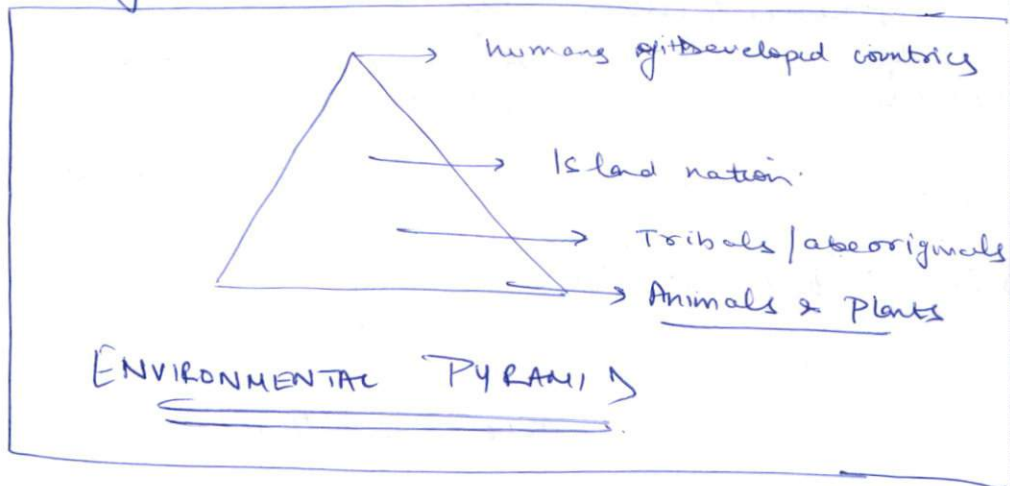 humans of Developed countries
Island nation.
Tribals / abeoriginals
Animals & Plants
ENVIRONMENTAL PYRAMID